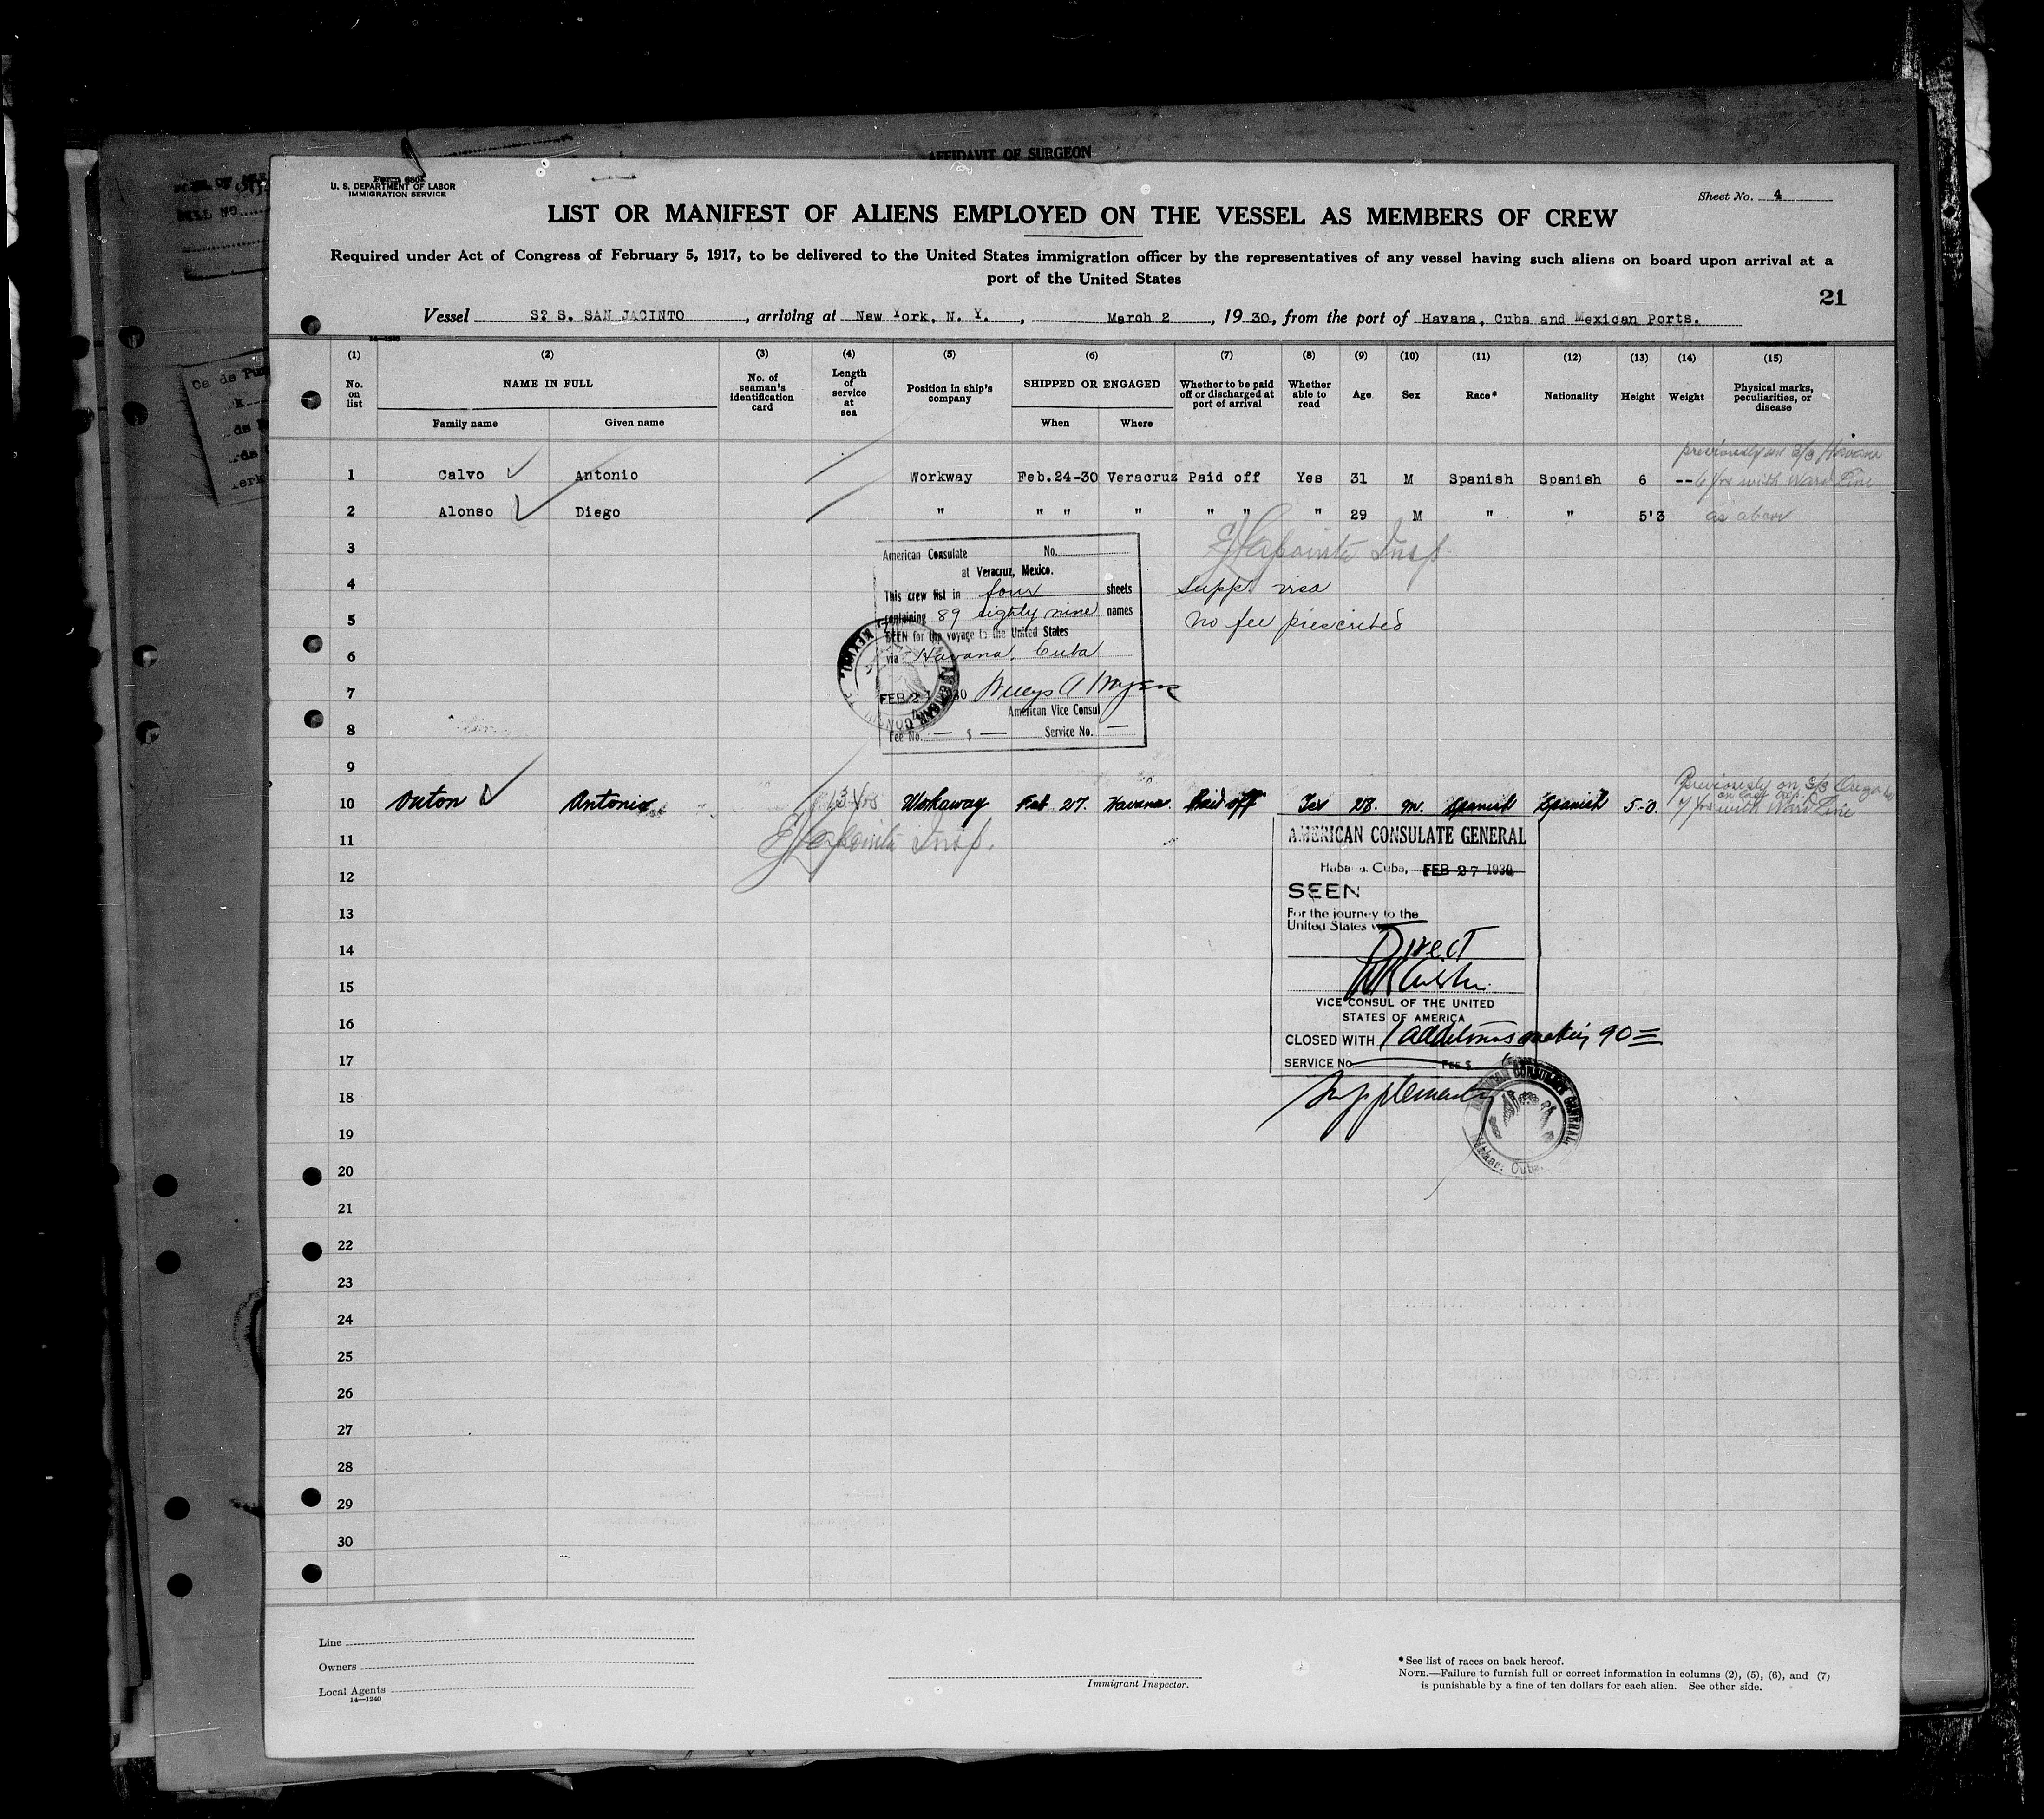 AFFIDAVIT OF SURGEON
Form 680
U. S. DEPARTMENT OF LABOR
IMMIGRATION SERVICE
Sheet No. 4
LIST OR MANIFEST OF ALIENS EMPLOYED ON THE VESSEL AS MEMBERS OF CREW
Required under Act of Congress of February 5, 1917, to be delivered to the United States immigration officer by the representatives of any vessel having such aliens on board upon arrival at a
port of the United States
21
Vessel S? S. SAN JACINTO, arriving at New York, N. Y., March 2, 1930, from the port of Havana, Cuba and Mexican Ports.
14-1240
(1) (2) (3) (4) (5) (6) (7) (8) (9) (10) (11) (12) (13) (14) (15)
No. on list NAME IN FULL No. of seaman's identification card Length of service at sea Position in ship's company SHIPPED OR ENGAGED Whether to be paid off or discharged at port of arrival Whether able to read Age Sex Race* Nationality Height Weight Physical marks, peculiarities, or disease
Family name Given name When Where
previously on S/S Havana
1 Calvo Antonio Workway Feb.24-30 Veracruz Paid off Yes 31 M Spanish Spanish 6 -- 6 yrs with Ward Line
2 Alonso Diego " " " " " " " 29 M " " 5'3 as above
3
Lapointe Insp
American Consulate No.
at Veracruz, Mexico.
4
This crew list in four sheets
Supp. visa
containing 89 eighty nine names
5
No fee prescribed
SEEN for the voyage to the United States
6
via Havana, Cuba
7
FEB 27 1930
American Vice Consul
8
Fee No. — $ — Service No. —
9
Previously on S/S Orizaba
on last trip
10 Outon Antonio 13 yrs Workaway Feb 27. Havana. Paid off Yes 28. M. Spanish Spanish 5-0. 7 yrs with Ward Line
11
Lapointe Insp.
AMERICAN CONSULATE GENERAL
12
Habana, Cuba, FEB 27 1930
SEEN
13
For the journey to the
United States via
14
Direct
15
VICE CONSUL OF THE UNITED
STATES OF AMERICA
16
CLOSED WITH 1 additions making 90
17
SERVICE No. FEE $
18
Supplementary
AMERICAN CONSULATE GENERAL
Habana, Cuba.
19
20
21
22
23
24
25
26
27
28
29
30
Line
Owners
Local Agents
14—1240
Immigrant Inspector.
*See list of races on back hereof.
NOTE.—Failure to furnish full or correct information in columns (2), (5), (6), and (7)
is punishable by a fine of ten dollars for each alien. See other side.